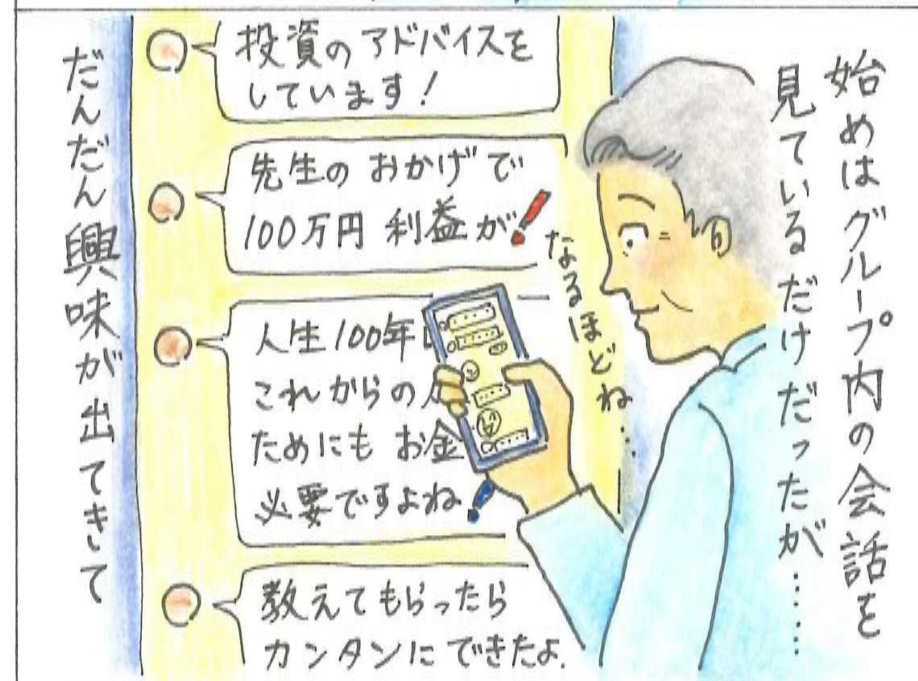 始めはグループ内の会話を
見ているだけだったが……
投資のアドバイスを
しています!
先生の おかげで
100万円 利益が!
人生100年
これからの
ためにも お金
必要ですよね!
教えてもらったら
カンタンに できたよ.
なるほどね…
だんだん興味が出てきて